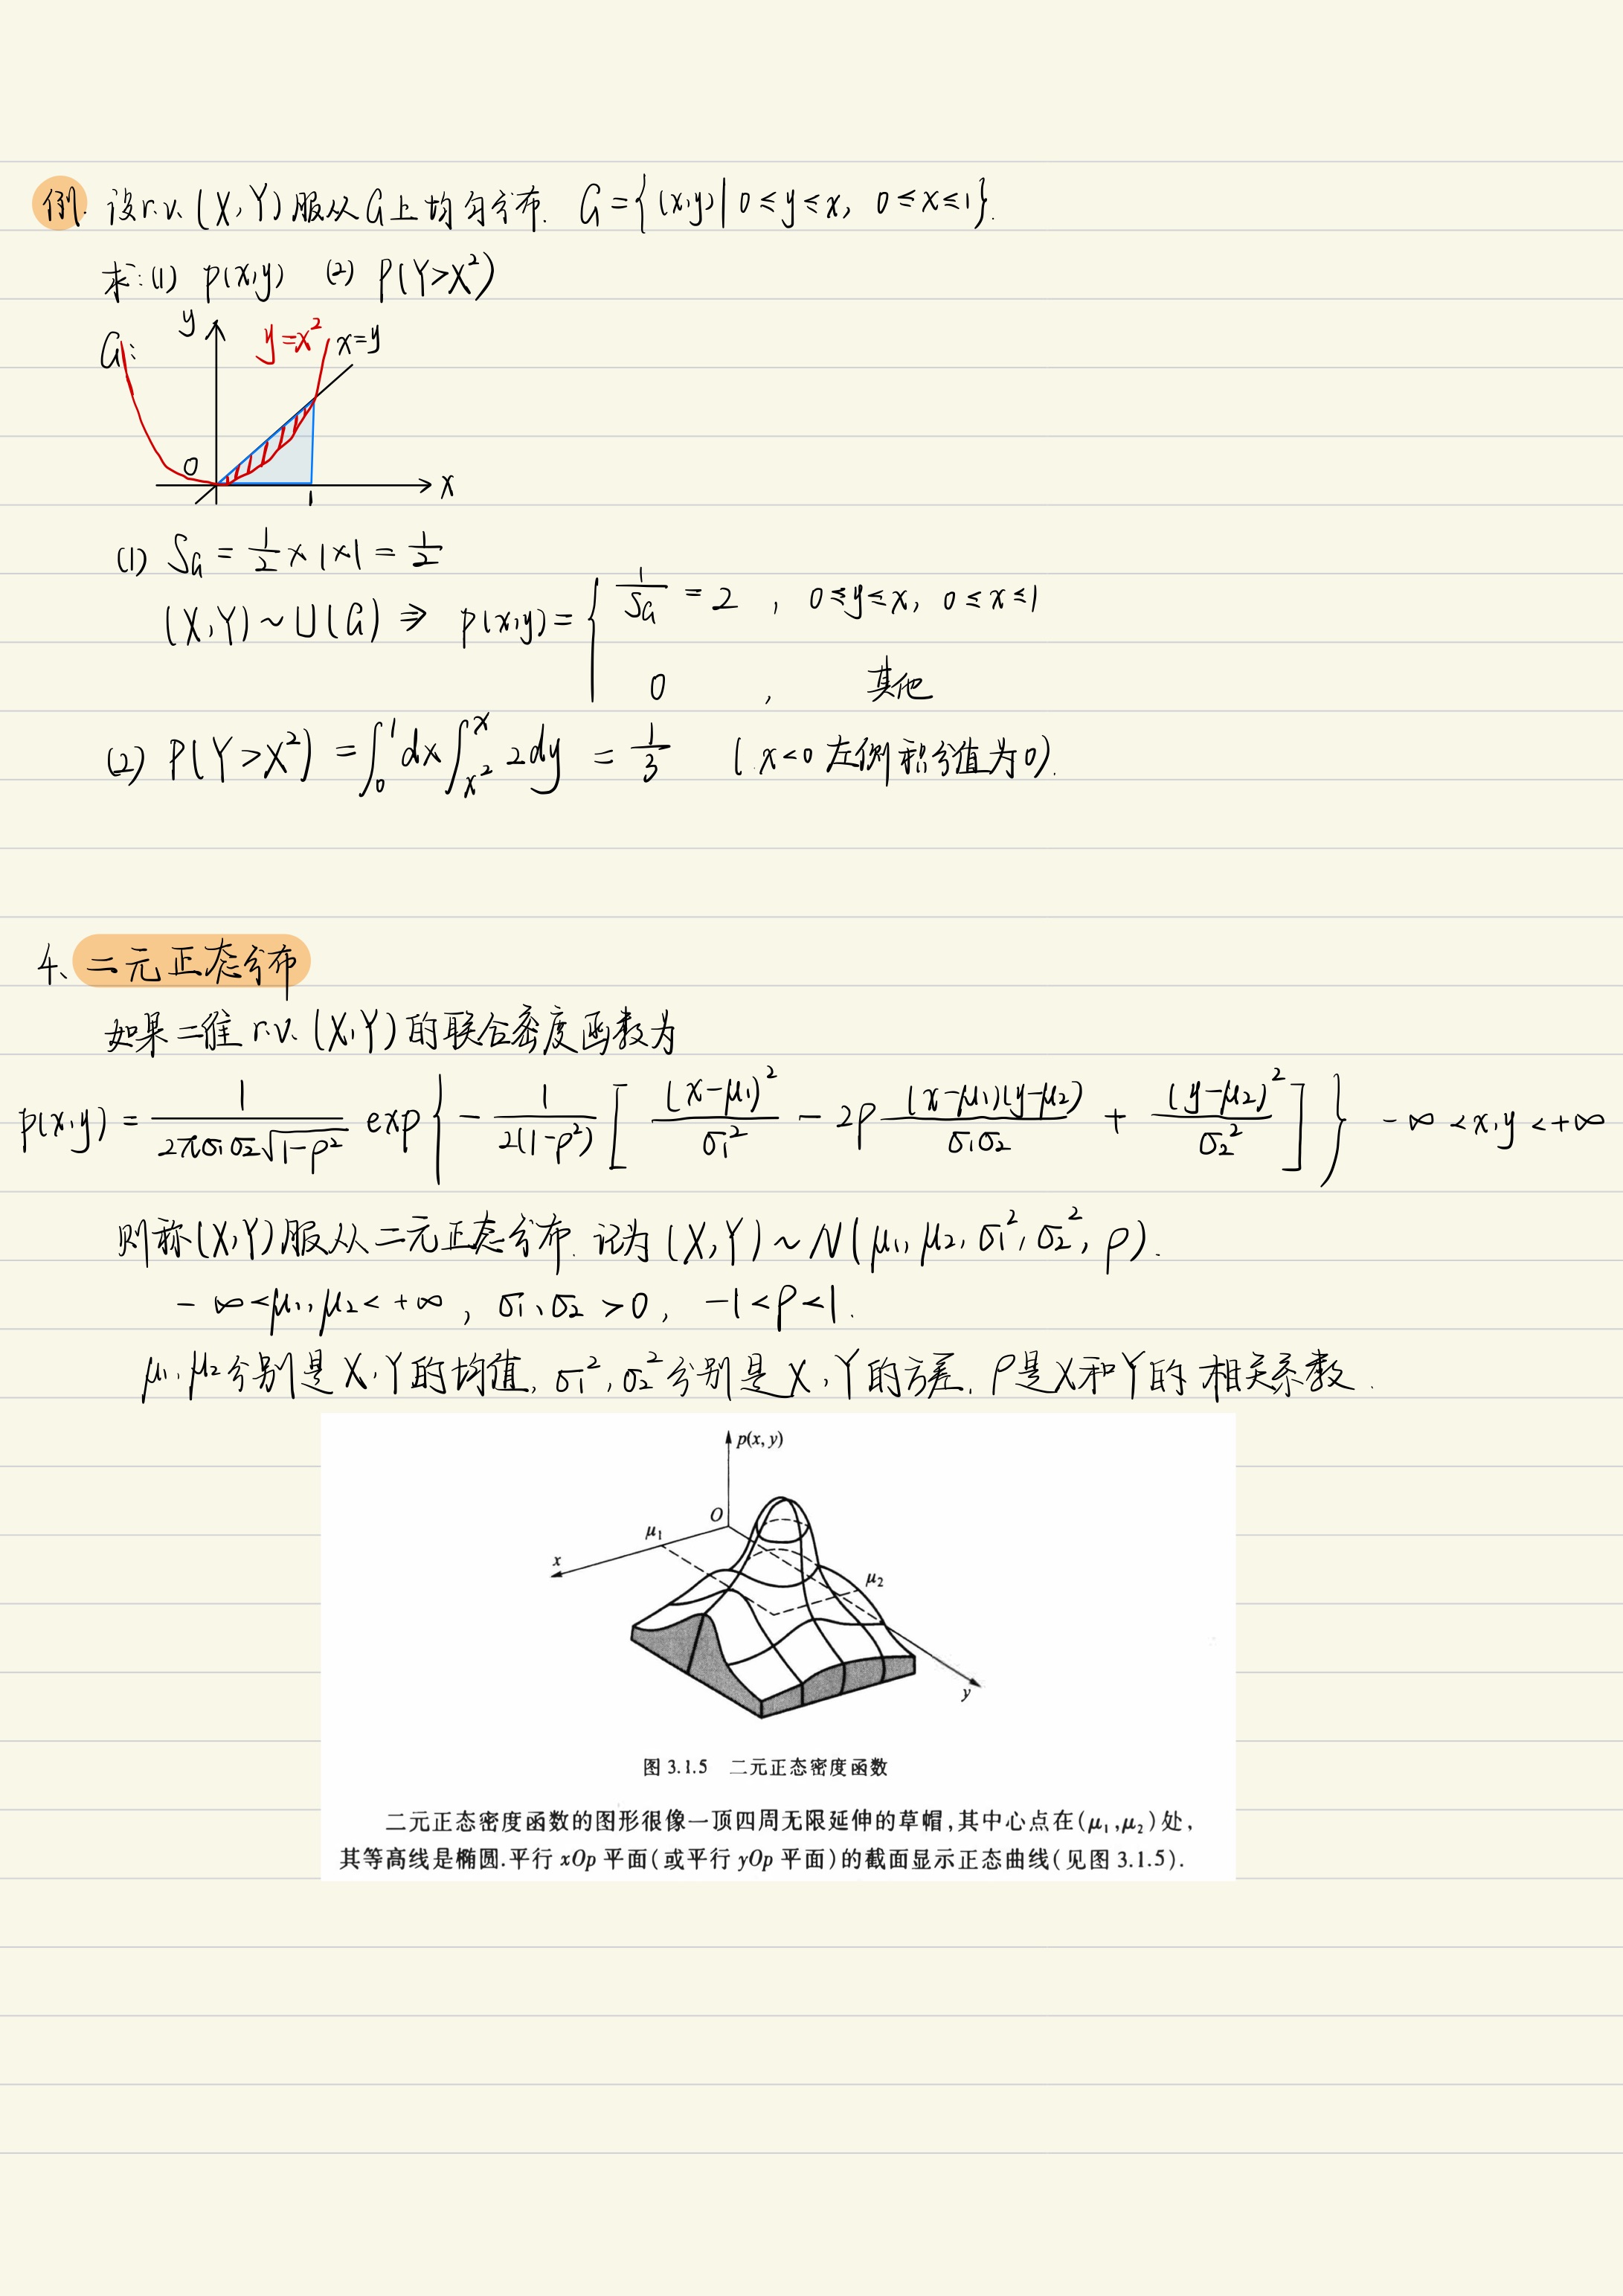 例. 设r.v. (X,Y)服从G上均匀分布. G={(x,y)|0≤y≤x, 0≤x≤1}.
求:(1) p(x,y) (2) P(Y>X²)
G: y y=x² x=y
0 1 x
(1) S_G = 1/2 ×1×1 = 1/2
(X,Y)~U(G) ⇒ p(x,y)= { 1/S_G = 2 , 0≤y≤x, 0≤x≤1
0 , 其他
(2) P(Y>X²) = ∫₀¹dx∫_{x²}^{x} 2dy = 1/3 (x<0左侧积分值为0).
4、二元正态分布
如果二维 r.v. (X,Y)的联合密度函数为
p(x,y) = 1/(2πσ₁σ₂√(1-ρ²)) exp{ - 1/(2(1-ρ²)) [ (x-μ₁)²/σ₁² - 2ρ (x-μ₁)(y-μ₂)/(σ₁σ₂) + (y-μ₂)²/σ₂² ] } -∞<x,y<+∞
则称(X,Y)服从二元正态分布. 记为(X,Y)~N(μ₁,μ₂,σ₁²,σ₂²,ρ).
-∞<μ₁,μ₂<+∞, σ₁、σ₂>0, -1<ρ<1.
μ₁,μ₂分别是X,Y的均值, σ₁²,σ₂²分别是X,Y的方差, ρ是X和Y的相关系数.
p(x,y)
O
μ₁
x
μ₂
y
图 3.1.5 二元正态密度函数
二元正态密度函数的图形很像一顶四周无限延伸的草帽,其中心点在(μ₁,μ₂)处,
其等高线是椭圆.平行 xOp 平面(或平行 yOp 平面)的截面显示正态曲线(见图 3.1.5).